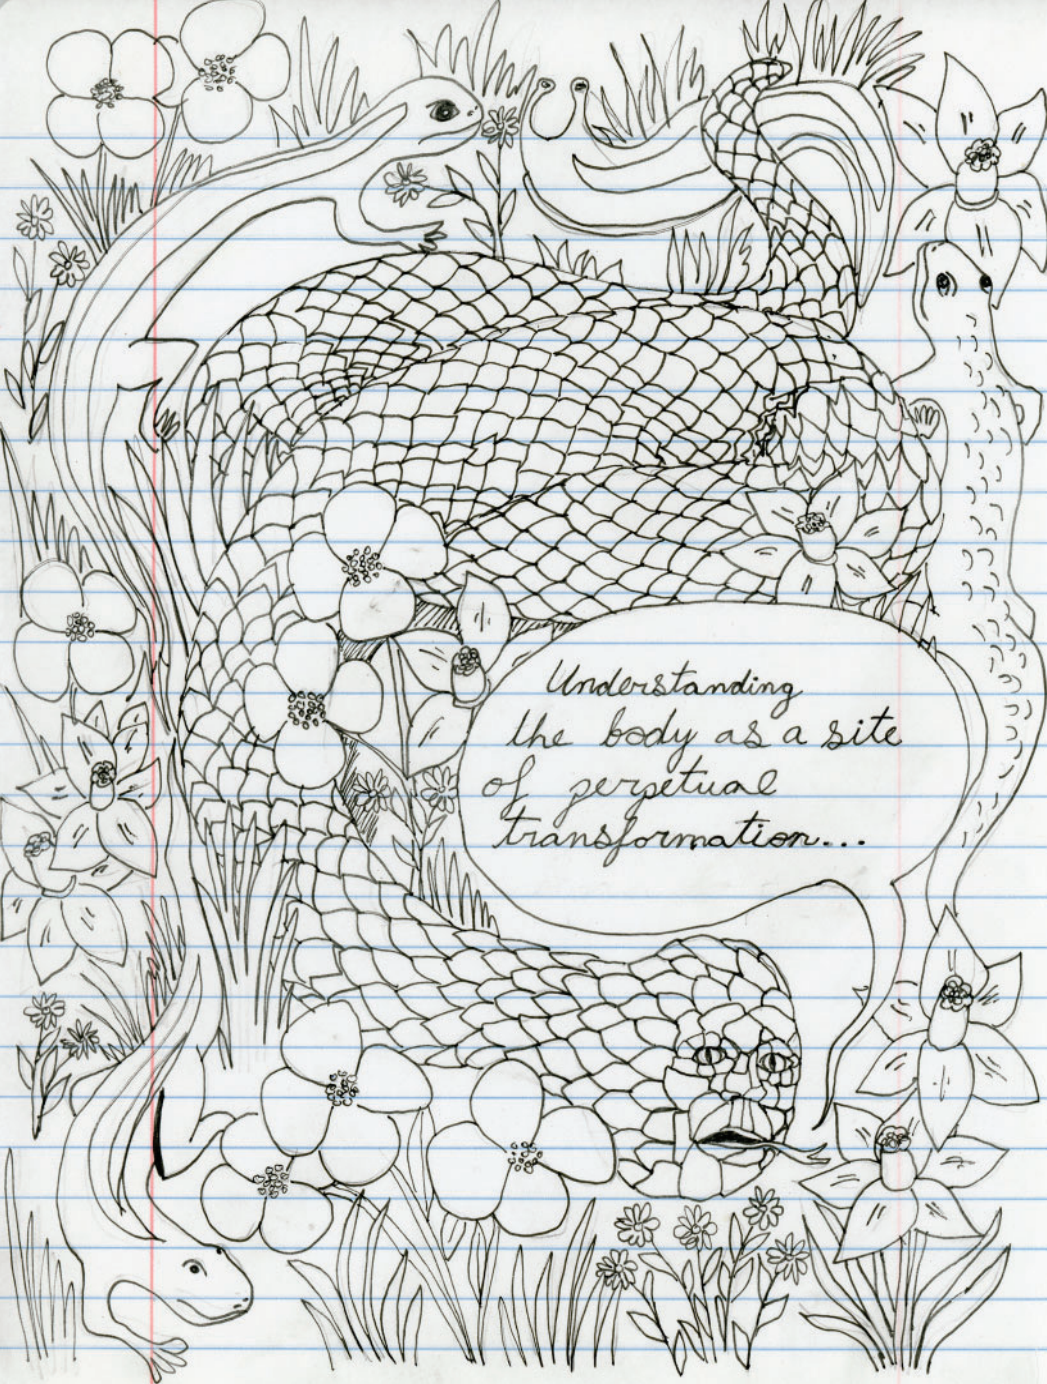 Understanding
the body as a site
of perpetual
transformation...